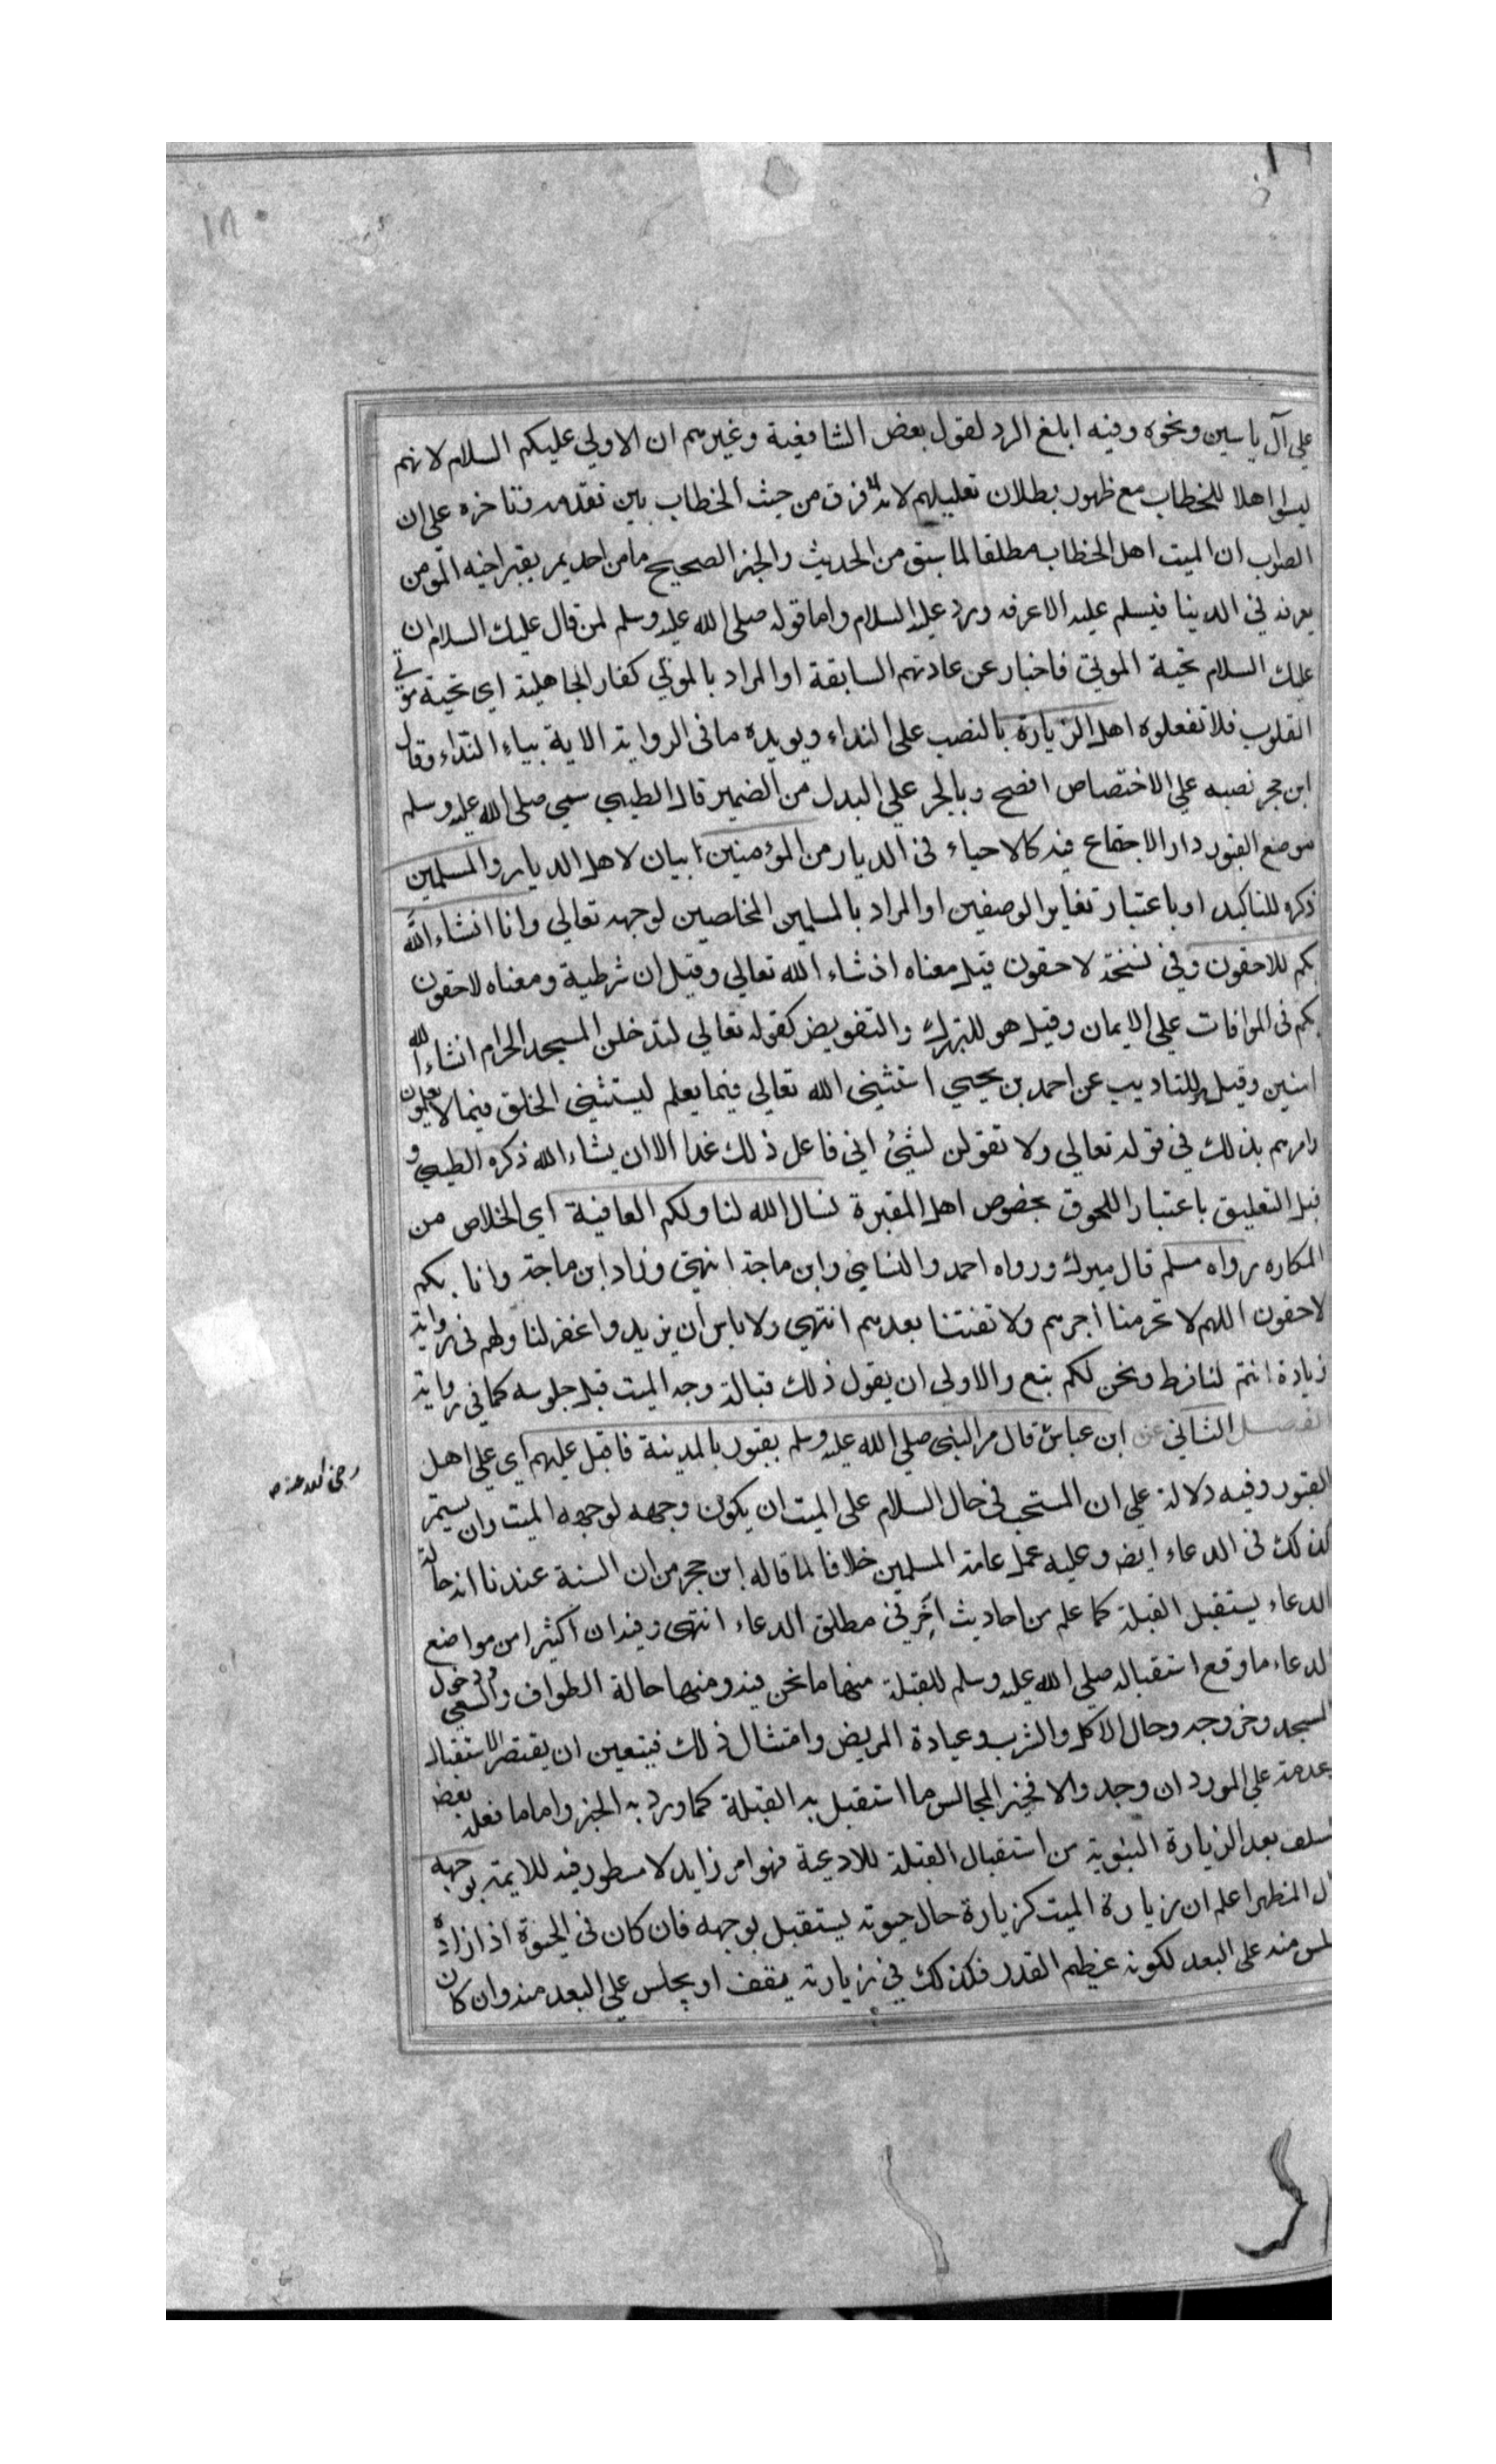 ١٨٠
علي آل ياسين ونحوه وفيه ابلغ الرد لقول بعض الشافعية وغيرهم ان الاولي عليكم السلام لانهم
ليسوا اهلا للخطاب مع ظهور بطلان تعليلهم لانه لا فرق من حيث الخطاب بين تقدمه وتاخره علي ان
الصواب ان الميت اهل الخطاب مطلقا لما سبق من الحديث والخبر الصحيح ما من احد يمر بقبر اخيه المومن
يعرفه في الدنيا فيسلم عليه الا عرفه ورد عليه السلام واما قوله صلى الله عليه وسلم لمن قال عليك السلام ان
عليك السلام تحية الموتي فاخبار عن عادتهم السابقة او المراد بالموتي كفار الجاهلية اي تحية موتي
القلوب فلا تفعلوه اهل الزيارة بالنصب على النداء ويويده ما في الرواية الاية بياء النداء وقال
ابن حجر نصبه علي الاختصاص افصح وبالجر علي البدل من الضمير قال الطيبي سمي صلى الله عليه وسلم
موضع القبور دار الاجتماع فيه كالاحياء في الديار من المؤمنين بيان لاهل الديار والمسلمين
ذكره للتاكيد او باعتبار تغاير الوصفين او المراد بالمسلمين المخلصين لوجهه تعالي وانا انشاء الله
بكم للاحقون وفي نسخة لاحقون قيل معناه اذ شاء الله تعالي وقيل ان شرطية ومعناه لاحقون
بكم في الموافات علي الايمان وقيل هو للتبرك والتفويض كقوله تعالي لتدخلن المسجد الحرام انشاء الله
امنين وقيل للتاديب عن احمد بن يحيي استثنى الله تعالي فيما يعلم ليستثني الخلق فيما لا يعلمون
وامرهم بذلك في قوله تعالي ولا تقولن لشيئ اني فاعل ذلك غدا الا ان يشاء الله ذكره الطيبي و
قيل التعليق باعتبار اللحوق بخصوص اهل المقبرة نسال الله لنا ولكم العافية اي الخلاص من
المكاره رواه مسلم قال ميرك ورواه احمد والنسائي وابن ماجة انتهي وزاد ابن ماجة وانا بكم
لاحقون اللهم لا تحرمنا اجرهم ولا تفتنا بعدهم انتهي ولا باس ان يزيد واغفر لنا ولهم في رواية
زيادة انتم لنا فرط ونحن لكم تبع والاولى ان يقول ذلك قبالة وجه الميت قبل جلوسه كما في رواية
الفصل الثاني عن ابن عباس قال مر النبي صلي الله عليه وسلم بقبور بالمدينة فاقبل عليهم اي علي اهل
رضي الله عنه صح
القبور وفيه دلالة علي ان المستحب في حال السلام على الميت ان يكون وجهه لوجهه الميت وان يستمر
كذلك في الدعاء ايضا وعليه عمل عامة المسلمين خلافا لما قاله ابن حجر من ان السنة عندنا انه حالة
الدعاء يستقبل القبلة كما علم من احاديث اخر في مطلق الدعاء انتهى وفيه ان اكثيرا من مواضع
الدعاء ما وقع استقباله صلي الله عليه وسلم للقبلة منها ما نحن فيه ومنها حالة الطواف والسعي ودخول
المسجد وخروجه وحال الاكل والشرب وعيادة المريض وامتثال ذلك فيتعين ان يقتصر الاستقبال
وعدمه علي المورد ان وجد والا فخير المجالس ما استقبل به القبلة كما ورد به الخبر واما ما فعله بعض
السلف بعد الزيارة النبوية من استقبال القبلة للادعية فهو امر زايد لا مسطور فيه للايمة بوجهه
قال المظهر اعلم ان زيارة الميت كزيارة حال حيوته يستقبل بوجهه فان كان في الحيوة اذا زاره
جلس منه على البعد لكونه عظيم القدر فكذلك في زيارته يقف او يجلس علي البعد منه وان كان